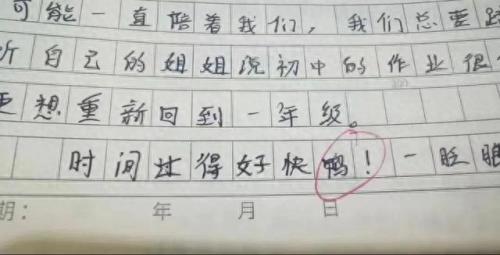 可能一直陪着我们，我们总要
听自己的姐姐说初中的作业很
更想重新回到一年级。
时间过得好快鸭！一眨眼
期：年月日